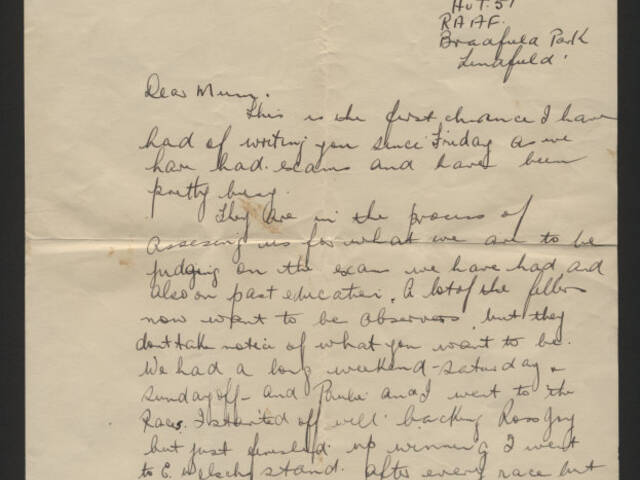 Hut 51
RAAF.
Bradfield Park
Lindfield.
Dear Mum,
This is the first chance I have
had of writing you since Friday as we
have had exams and have been
pretty busy.
They are in the process of
assesing us for what we are to be
judging on the exam we have had and
also on past education. A lot of the fellers
now want to be observers but they
dont take notice of what you want to be.
We had a long weekend - Saturday &
Sunday off - and and I went to the
Races. I started off well backing
but just finished up winning I went
to E. stand. after every race but